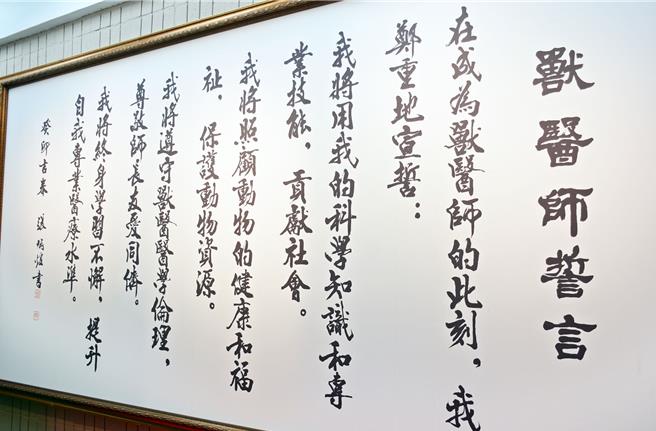 獸醫師誓言
在成為獸醫師的此刻，我
鄭重地宣誓：
我將用我的科學知識和專
業技能，貢獻社會。
我將照顧動物的健康和福
祉，保護動物資源。
我將遵守獸醫醫學倫理，
尊敬師長友愛同儕。
我將終身學習不懈，提升
自我專業醫療水準。
癸卯吉春 張炳煌書